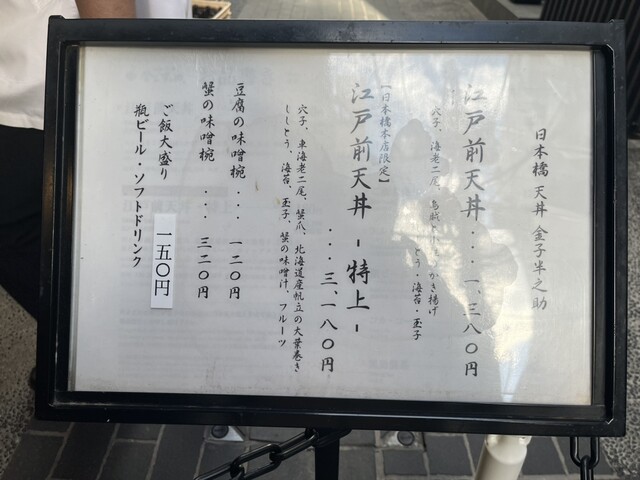 日本橋 天丼 金子半之助
江戸前天丼・・・一、三八〇円
穴子、海老二尾、烏賊と かき揚げ
とう・海苔・玉子
【日本橋本店限定】
江戸前天丼 -特上-
・・・三、一八〇円
穴子、車海老二尾、蟹爪、北海道産帆立の大葉巻き
ししとう、海苔、玉子、蟹の味噌汁、フルーツ
豆腐の味噌椀・・・一二〇円
蟹の味噌椀・・・三二〇円
ご飯大盛り 一五〇円
瓶ビール・ソフトドリンク